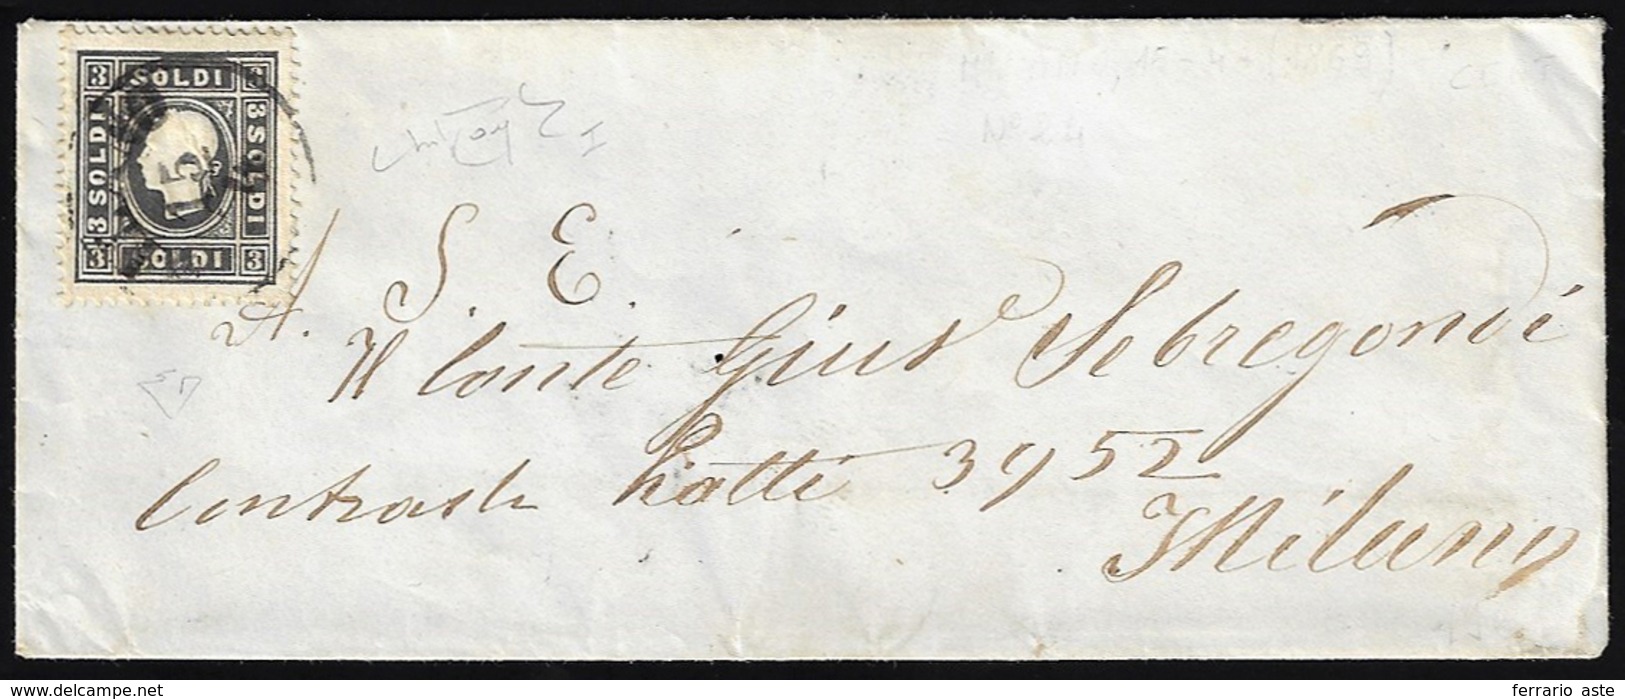 3 SOLDI 3
3 SOLDI
3 SOLDI
3 SOLDI 3
15
A. S. E.
Il Conte Gius Sebregondi
Contrada 3952
Milano
www.delcampe.net
ferrario aste